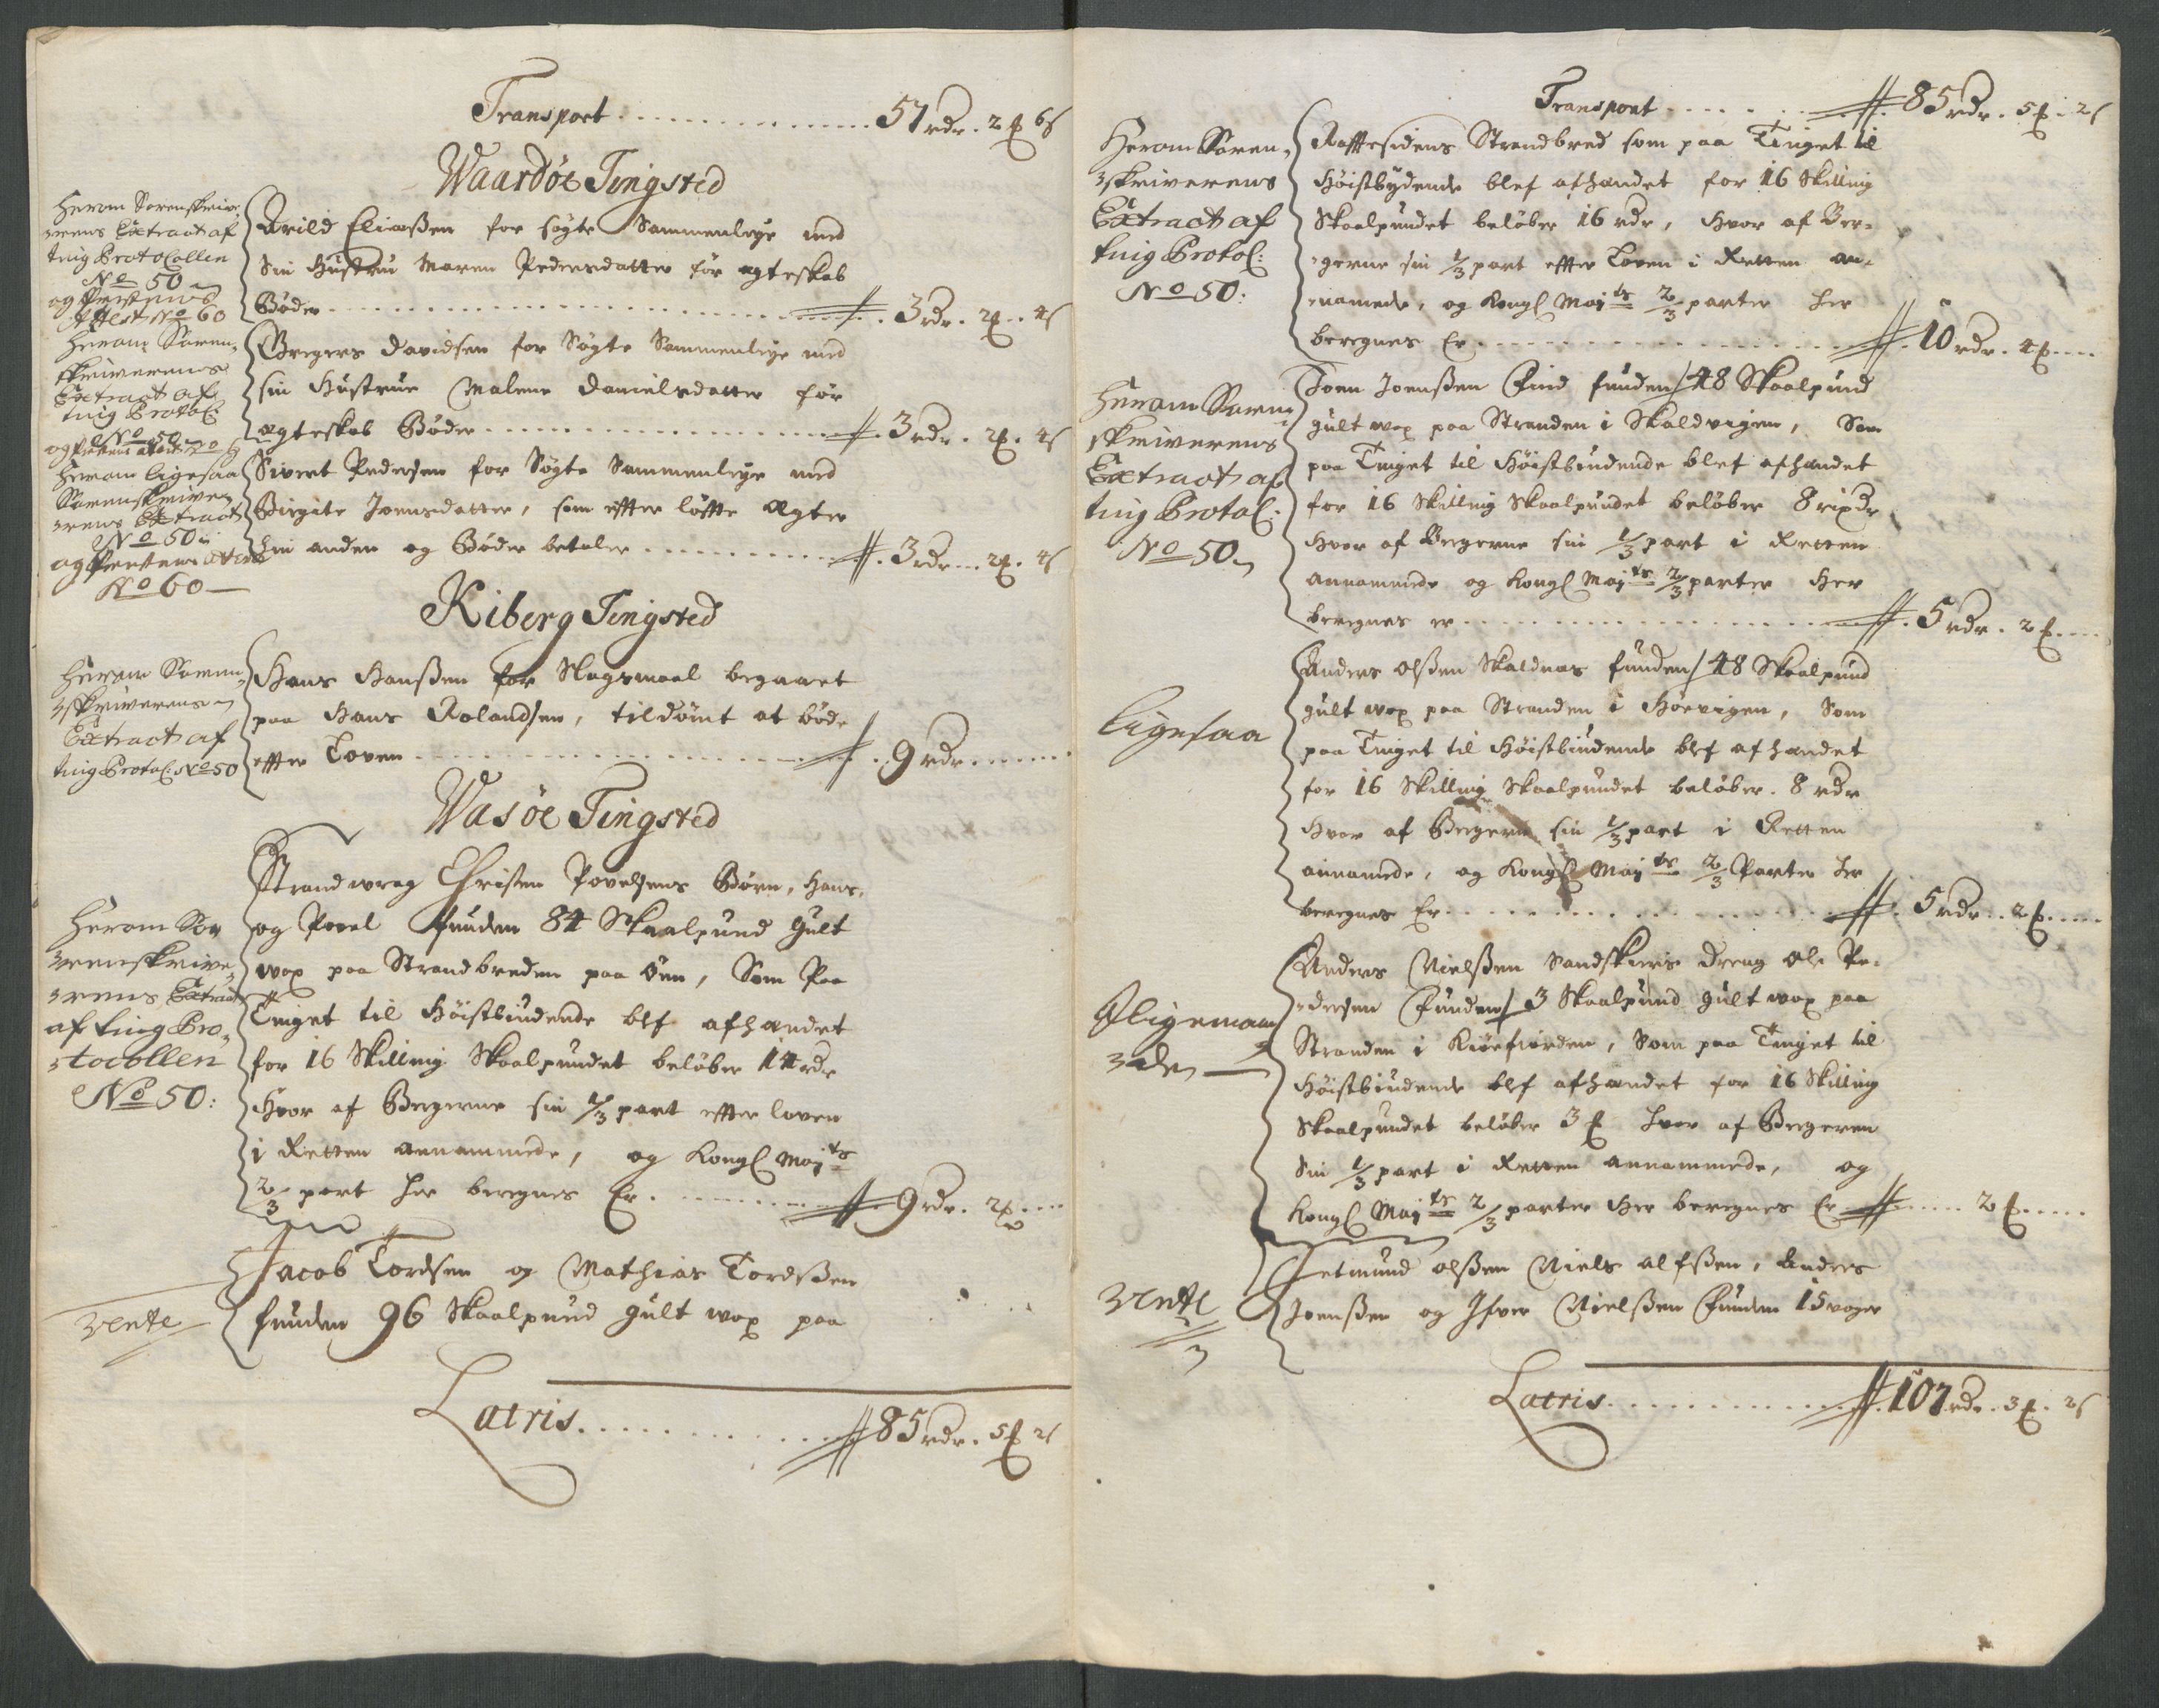 Transport . . . . . 57 rdr. 2 ℔ 6 s
Waardöe Tingsted
Herom Sorenskriv-
erens Extract af
ting Protocollen
No 50
og Prestens
Attest No 60
Arild Eliaßen for sögte Sammenleye med
Sin Hustru Maren Pedersdatter för ægteskab
Bøder . . . . . 3 rdr. 2 ℔. 4 s
Herom Soren-
skriverens
Extract af
ting Protol:
No 50
og Prestens attest No 60
Gregers Davidsen for Sögte Sammenleye med
sin Hustrue Malene Danielsdatter för
ægteskab Bøder . . . . . 3 rdr. 2 ℔. 4 s
Herom ligesaa
Sorenskrive-
rens Extract
No 50
og Prestens attest
No 60
Sivert Pedersen for Sögte Sammenleye med
Birgite Joensdatter, som effter löffte ægter
hin anden og Bøder betaler . . . . . 3 rdr. 2 ℔. 4 s
Kiberg Tingsted
Herom Soren-
skriverens
Extract af
ting Protol: No 50
Hans Hanßen for Slagsmaal begaaet
paa Hans Rolandsen, tildömt at böde
effter Loven . . . . . 9 rdr. . . .
Wasöe Tingsted
Herom Sor
renskrive-
rens Extract
af ting Pro-
tocollen
No 50:
Strandwrag Christen Povelsens Börn, Hans,
og Povel funden 84 Skaalpund gult
wox paa Strandbreden paa öen, Som Paa
Tinget til Höistbiudende blef afhandet
for 16 Skilling Skaalpundet belöber 14 rdr
Hvor af Bergerne sin 1/3 part effter loven
i Retten annammede, og Kongl Mayts
2/3 part her beregnes Er . . . . . 9 rdr. 2 ℔. . .
rente
Jacob Tordsen og Mathias Tordsßen
funden 96 Skaalpund gult wox paa
Latris . . . . . 85 rdr. 5 ℔ 2 s
Transport . . . . . 85 rdr. 5 ℔. 2 s
Herom Soren-
skriverens
Extract af
ting Protol:
No 50:
Rafftesidens Strandbred som paa Tinget til
Höistbydende blef afhandet for 16 Skilling
Skaalpundet belöber 16 rdr, Hvor af Ber-
gerne sin 1/3 part effter Loven i Retten an-
namede, og Kongl Mayts 2/3 parter her
beregnes Er . . . . . 10 rdr. 4 ℔. . .
Herom Soren-
skriverens
Extract af
ting Protol:
No 50
Joen Joenßen Find funden 48 Skaalpund
gult wox paa Stranden i Skaldvigen, Som
paa Tinget til Höistbiudende blef afhandet
for 16 Skilling Skaalpundet belöber 8 rixdr
Hvor af Bergerne sin 1/3 part i Retten
annammede og Kongl Mayts 2/3 parter Her
beregnes er . . . . . 5 rdr. 2 ℔. . .
Ligesaa
Anders Olßen Skaldnæs funden 48 Skaalpund
gult wox paa Stranden i Hoevigen, Som
paa Tinget til Höistbiudende blef afhandet
for 16 Skilling Skaalpundet belöber. 8 rdr
Hvor af Bergerne sin 1/3 part i Retten
annamede, og Kongl Mayts 2/3 Parter her
beregnes Er . . . . . 5 rdr. 2 ℔. . .
Iligemaa-
de
Anders Nielßen Sandskiers dreng Ole Pe-
dersen Funden 3 Skaalpund gult wox paa
Stranden i Kiöefiorden, Som paa Tinget til
Höistbiudende blef afhandet for 16 Skilling
Skaalpundet belöber 3 ℔ hvor af Bergeren
Sin 1/3 part i Retten annammede, og
Kongl Mayts 2/3 parter Her beregnes Er . . . 2 ℔. . .
rente
Getmund Olßen Niels Alfßen, Anders
Joenßen og Ifver Nielßen Funden 15 voger
Latris . . . . . 107 rdr. 3 ℔. 2 s